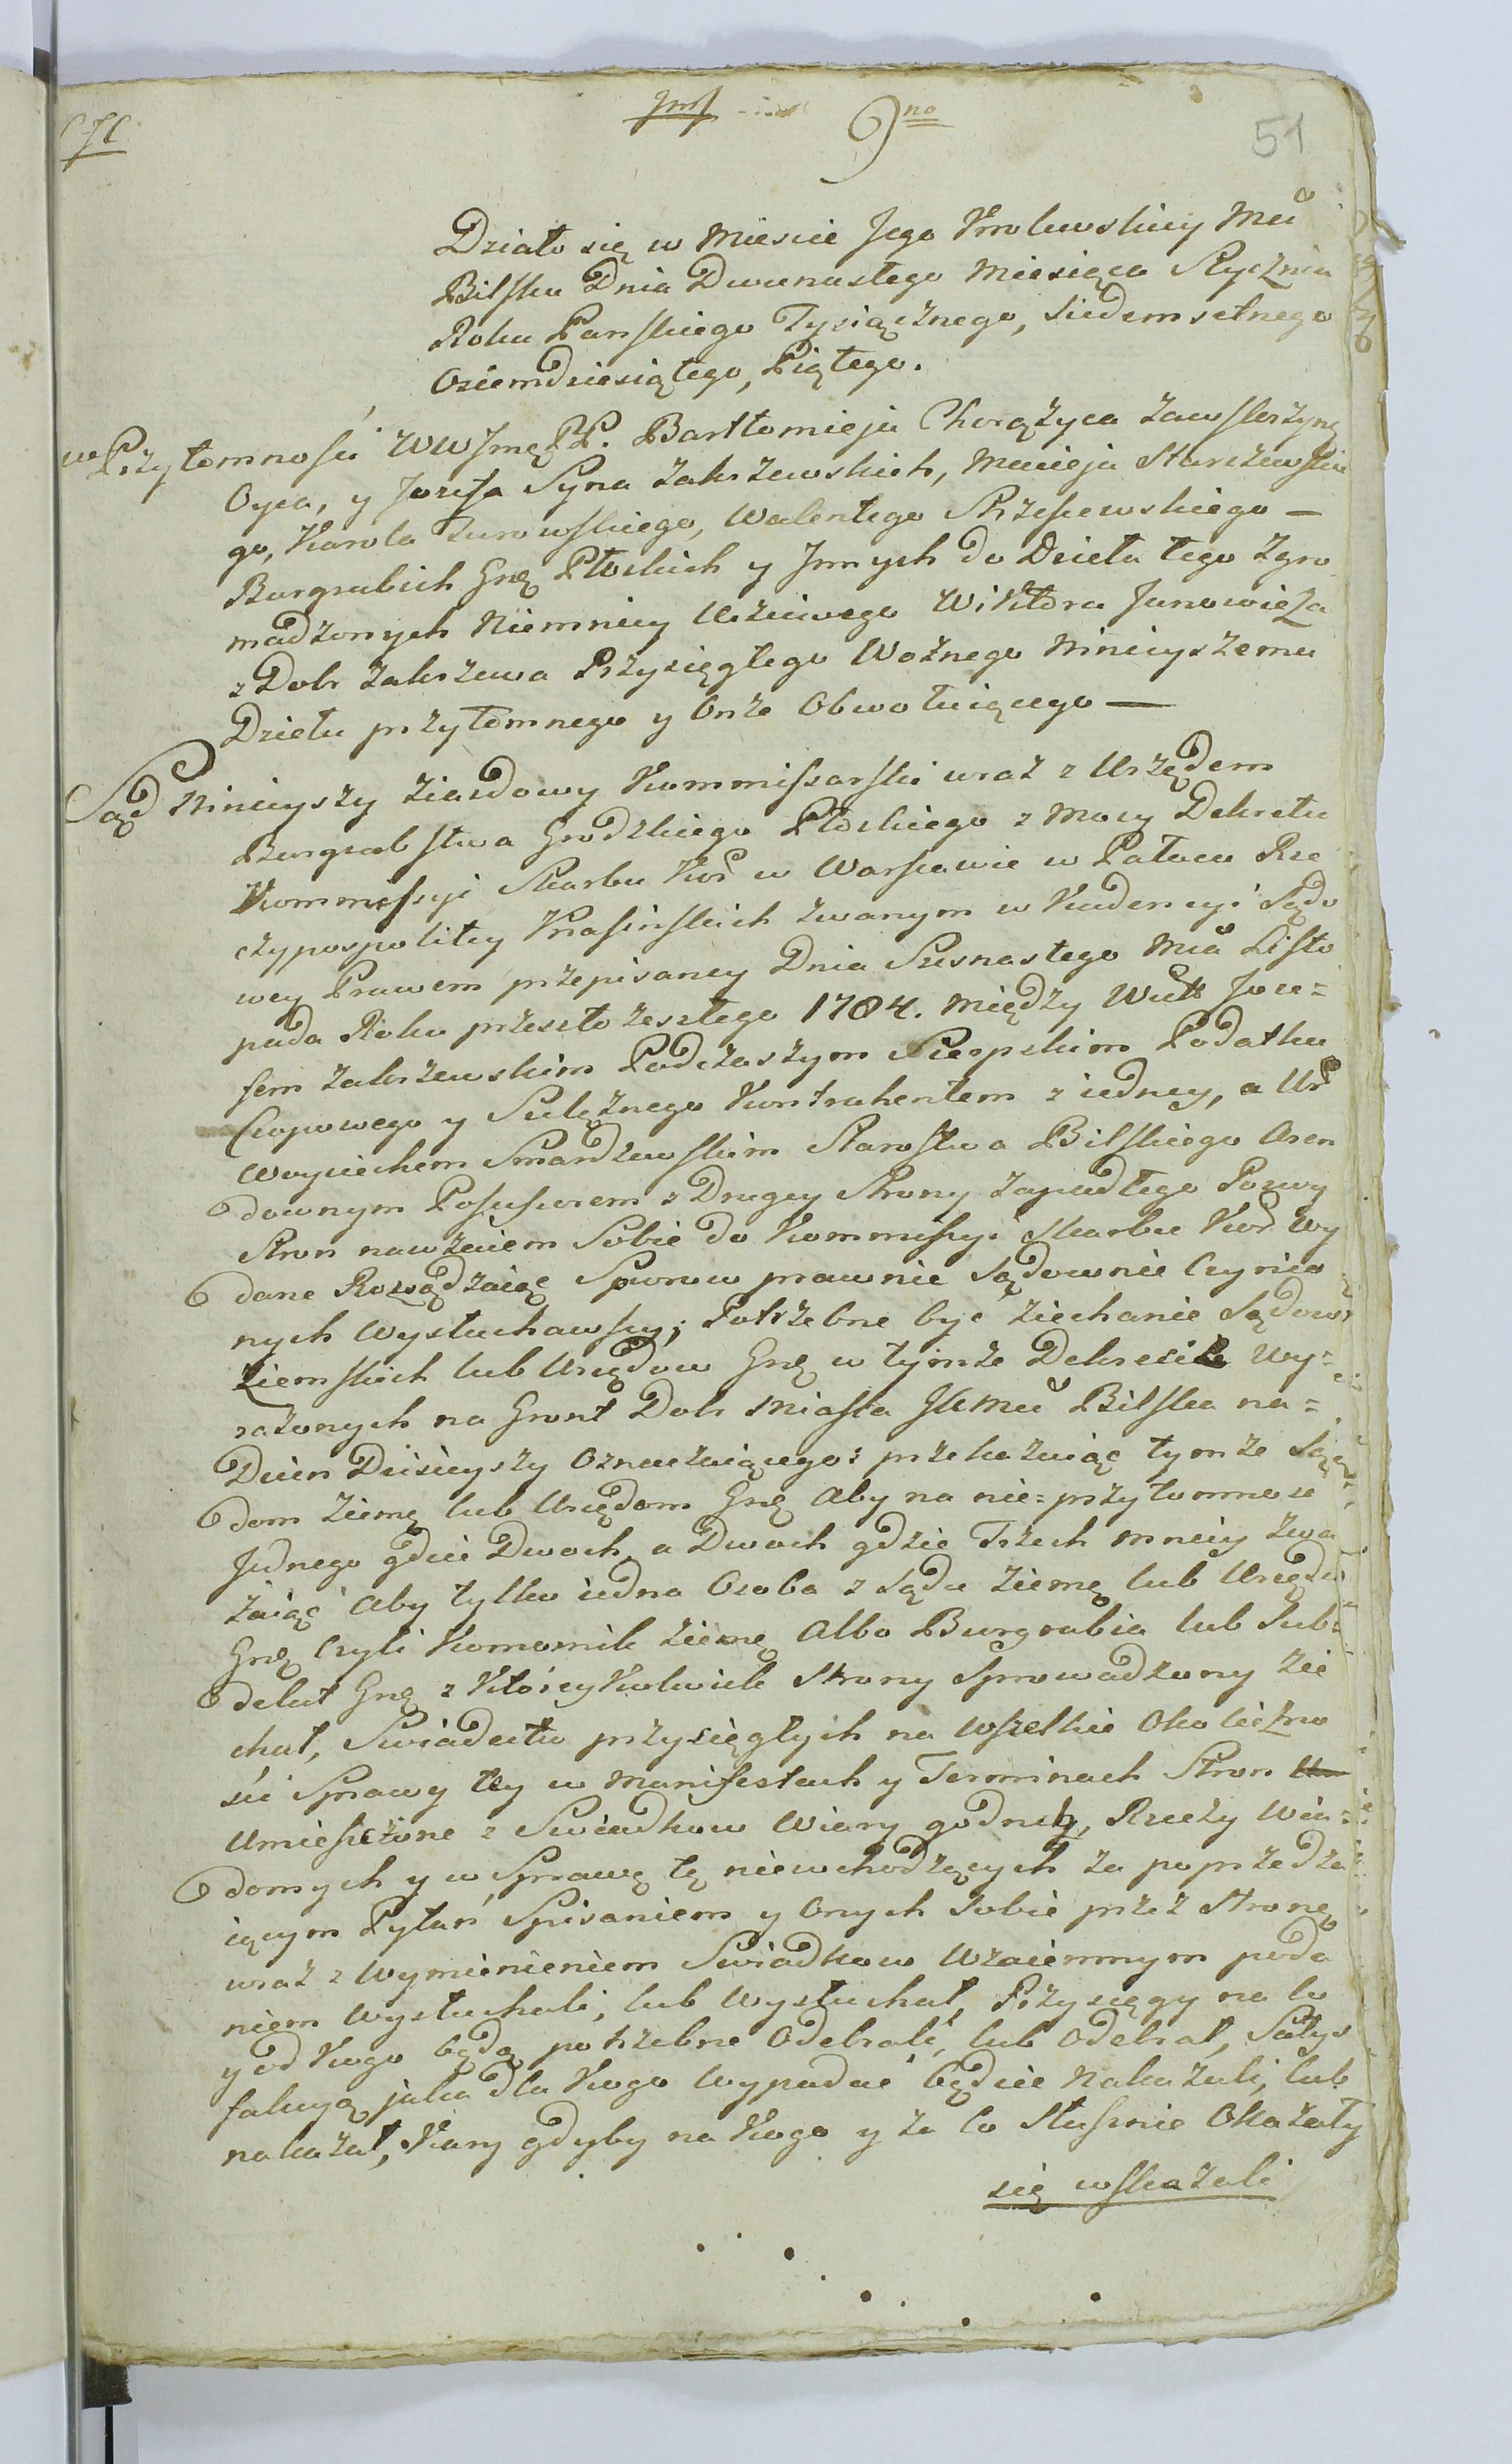 9no
51
Działo się w Miescie Jego Krolewskiey Mci
Bilsku Dnia Dwunastego Miesiąca Stycznia
Roku Panskiego Tysiącznego, Siedemsetnego
Osiemdziesiątego, Piątego.
w Przytomnosci WW Jmę PP. Bartłomieja Chorążyca Zawskrzynę
Oyca, y Jozefa Syna Zakrzewskich, Macieja Starczewskie
go, Karola Turowskiego, Walentego Strzeszewskiego —
Burgrabich Grę Płockich y Jnnych do Dzieła tego Zgro
madzonych Niemniey Uczciwego Wiktora Janowicza
z Dobr Zakrzewa Przysięgłego Woznego Ninieyszemu
Dziełu przytomnego y Onże Obwołuiącego —
Sąd Ninieyszy Ziazdowy Kommissarski wraz z Urzędem
Burgrabstwa Grodzkiego Płockiego z Mocy Dekretu
Kommissyi Skarbu Kor w Warszawie w Pałacu Rze
czypospolitey Krasinskich zwanym w Kadencyi Sądo
wey Prawem przepisaney Dnia Szesnastego Mca Listo
pada Roku przeszło zeszłego 1784. między Wm Joze=
fem Zakrzewskim Podczaszym Sierpskim Podatku
Czopowego y Szelężnego Kontrahentem z iedney, a Ur
Woyciechem Smardzewskim Starostwa Bilskiego Aren
downym Possessorem z Drugiey Strony Zapadłego Pozwy
Stron nawzaiem Sobie do Kommissyi Skarbu Kor Wy
dane Rozsądzaiąc Sporow prawnie Sądownie Czynio
nych Wysłuchawszy; Potrzebne być Ziechanie Sądow
Ziemskich lub Urzędow Grę w tymże Dekrecie Wy=
rażonych na Grunt Dobr Miasta JKMci Bilska na=
Dzien Dzisieyszy Oznaczaiącego: przekazuiąc tymże Są
dom Ziemę lub Urzędom Grę Aby na nie=przytomnosc
Jednego gdzie Dwoch, a Dwoch gdzie Trzech mniey zwa
żaiąc Aby tylko iedna Osoba z Sądu Ziemę lub Urzędu
Grę Czyli Komornik Ziemę Albo Burgrabia lub Sub=
delut Grę z Ktorey Kolwiek Strony Sprowadzony Zie
chał, Swiadectw przysięgłych na Wszelkie Okoliczno
sci Sprawy tey w Manifestach y Terminach Stron
Umieszczone z Swiadkow Wiary godnych, Rzeczy Wia=
domych y w Sprawę tę niewchodzących za poprzedza
iącym Pytań Spisaniem y Onych Sobie przez Stronę
wraz z Wymienieniem Swiadkow Wzaiemnym poda
niem Wysłuchali, lub Wysłuchał, Przysięgy na Co
y od Kogo będą potrzebne Odebrali, lub Odebrał, Satys
fakcyą jaka dla Kogo Wypadać będzie Nakazali, lub
nakazał, Kary gdyby na Kogo y za Co Słusznie Okazały
się wskazali